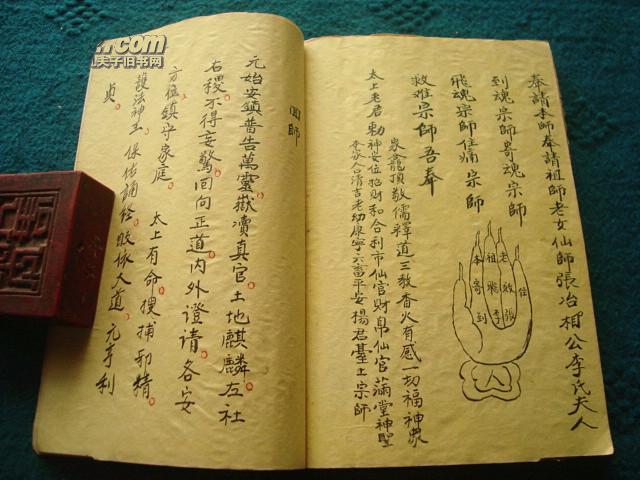 奉請本師奉請祖師老女仙師張冶相公李氏夫人
到魂宗師寄魂宗師
飛魂宗師住痛宗師
救难宗師吾奉
家龕頂敬儒釋道三教香火有感一切福神眾
神安位招財和合利市仙官財帛仙官滿堂神聖
太上老君勅
本家人口清吉老幼康寧六畜平安揚君臺土宗師
住
老
祖
本
寄
到
李
張
回師
元始安鎮普告萬靈嶽瀆真官土地麒麟左社
右稷不得妄驚回向正道內外證請各安
方位鎮守家庭 太上有命搜捕邪精
護法神王保佑誦经皈依大道元亨利
貞
.com
夫子旧书网